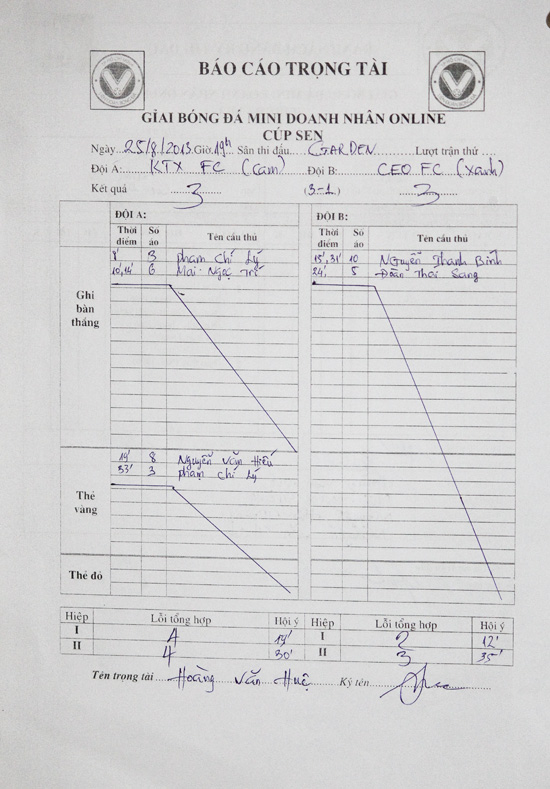 BÁO CÁO TRỌNG TÀI
GIẢI BÓNG ĐÁ MINI DOANH NHÂN ONLINE
CÚP SEN
Ngày 25/8/2013 Giờ 19h Sân thi đấu GARDEN Lượt trận thứ
Đội A: KTX FC (Cam) Đội B: CEO FC (Xanh)
Kết quả 3 (3-1) 3
ĐỘI A: ĐỘI B:
Thời điểm Số áo Tên cầu thủ Thời điểm Số áo Tên cầu thủ
8' 3 phạm chí Lý 15', 31' 10 Nguyễn Thanh Bình
10', 14' 6 Mai Ngọc Trí 24' 5 Đoàn Thái Sang
Ghi bàn thắng
19' 8 Nguyễn Văn Hiếu
33' 3 phạm chí Lý
Thẻ vàng
Thẻ đỏ
Hiệp Lỗi tổng hợp Hội ý Hiệp Lỗi tổng hợp Hội ý
I 19' I 2 12'
II 4 30' II 3 35'
Tên trọng tài Hoàng Văn Huệ Ký tên